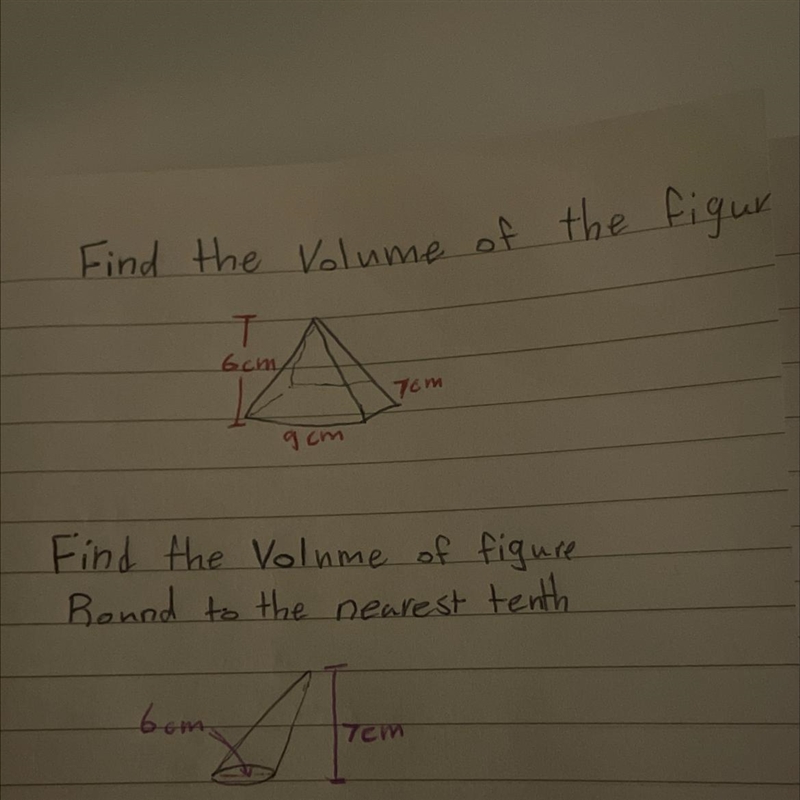 Find the Volume of the figur
6cm
7cm
9cm
Find the Volume of figure
Round to the nearest tenth
6cm
7cm